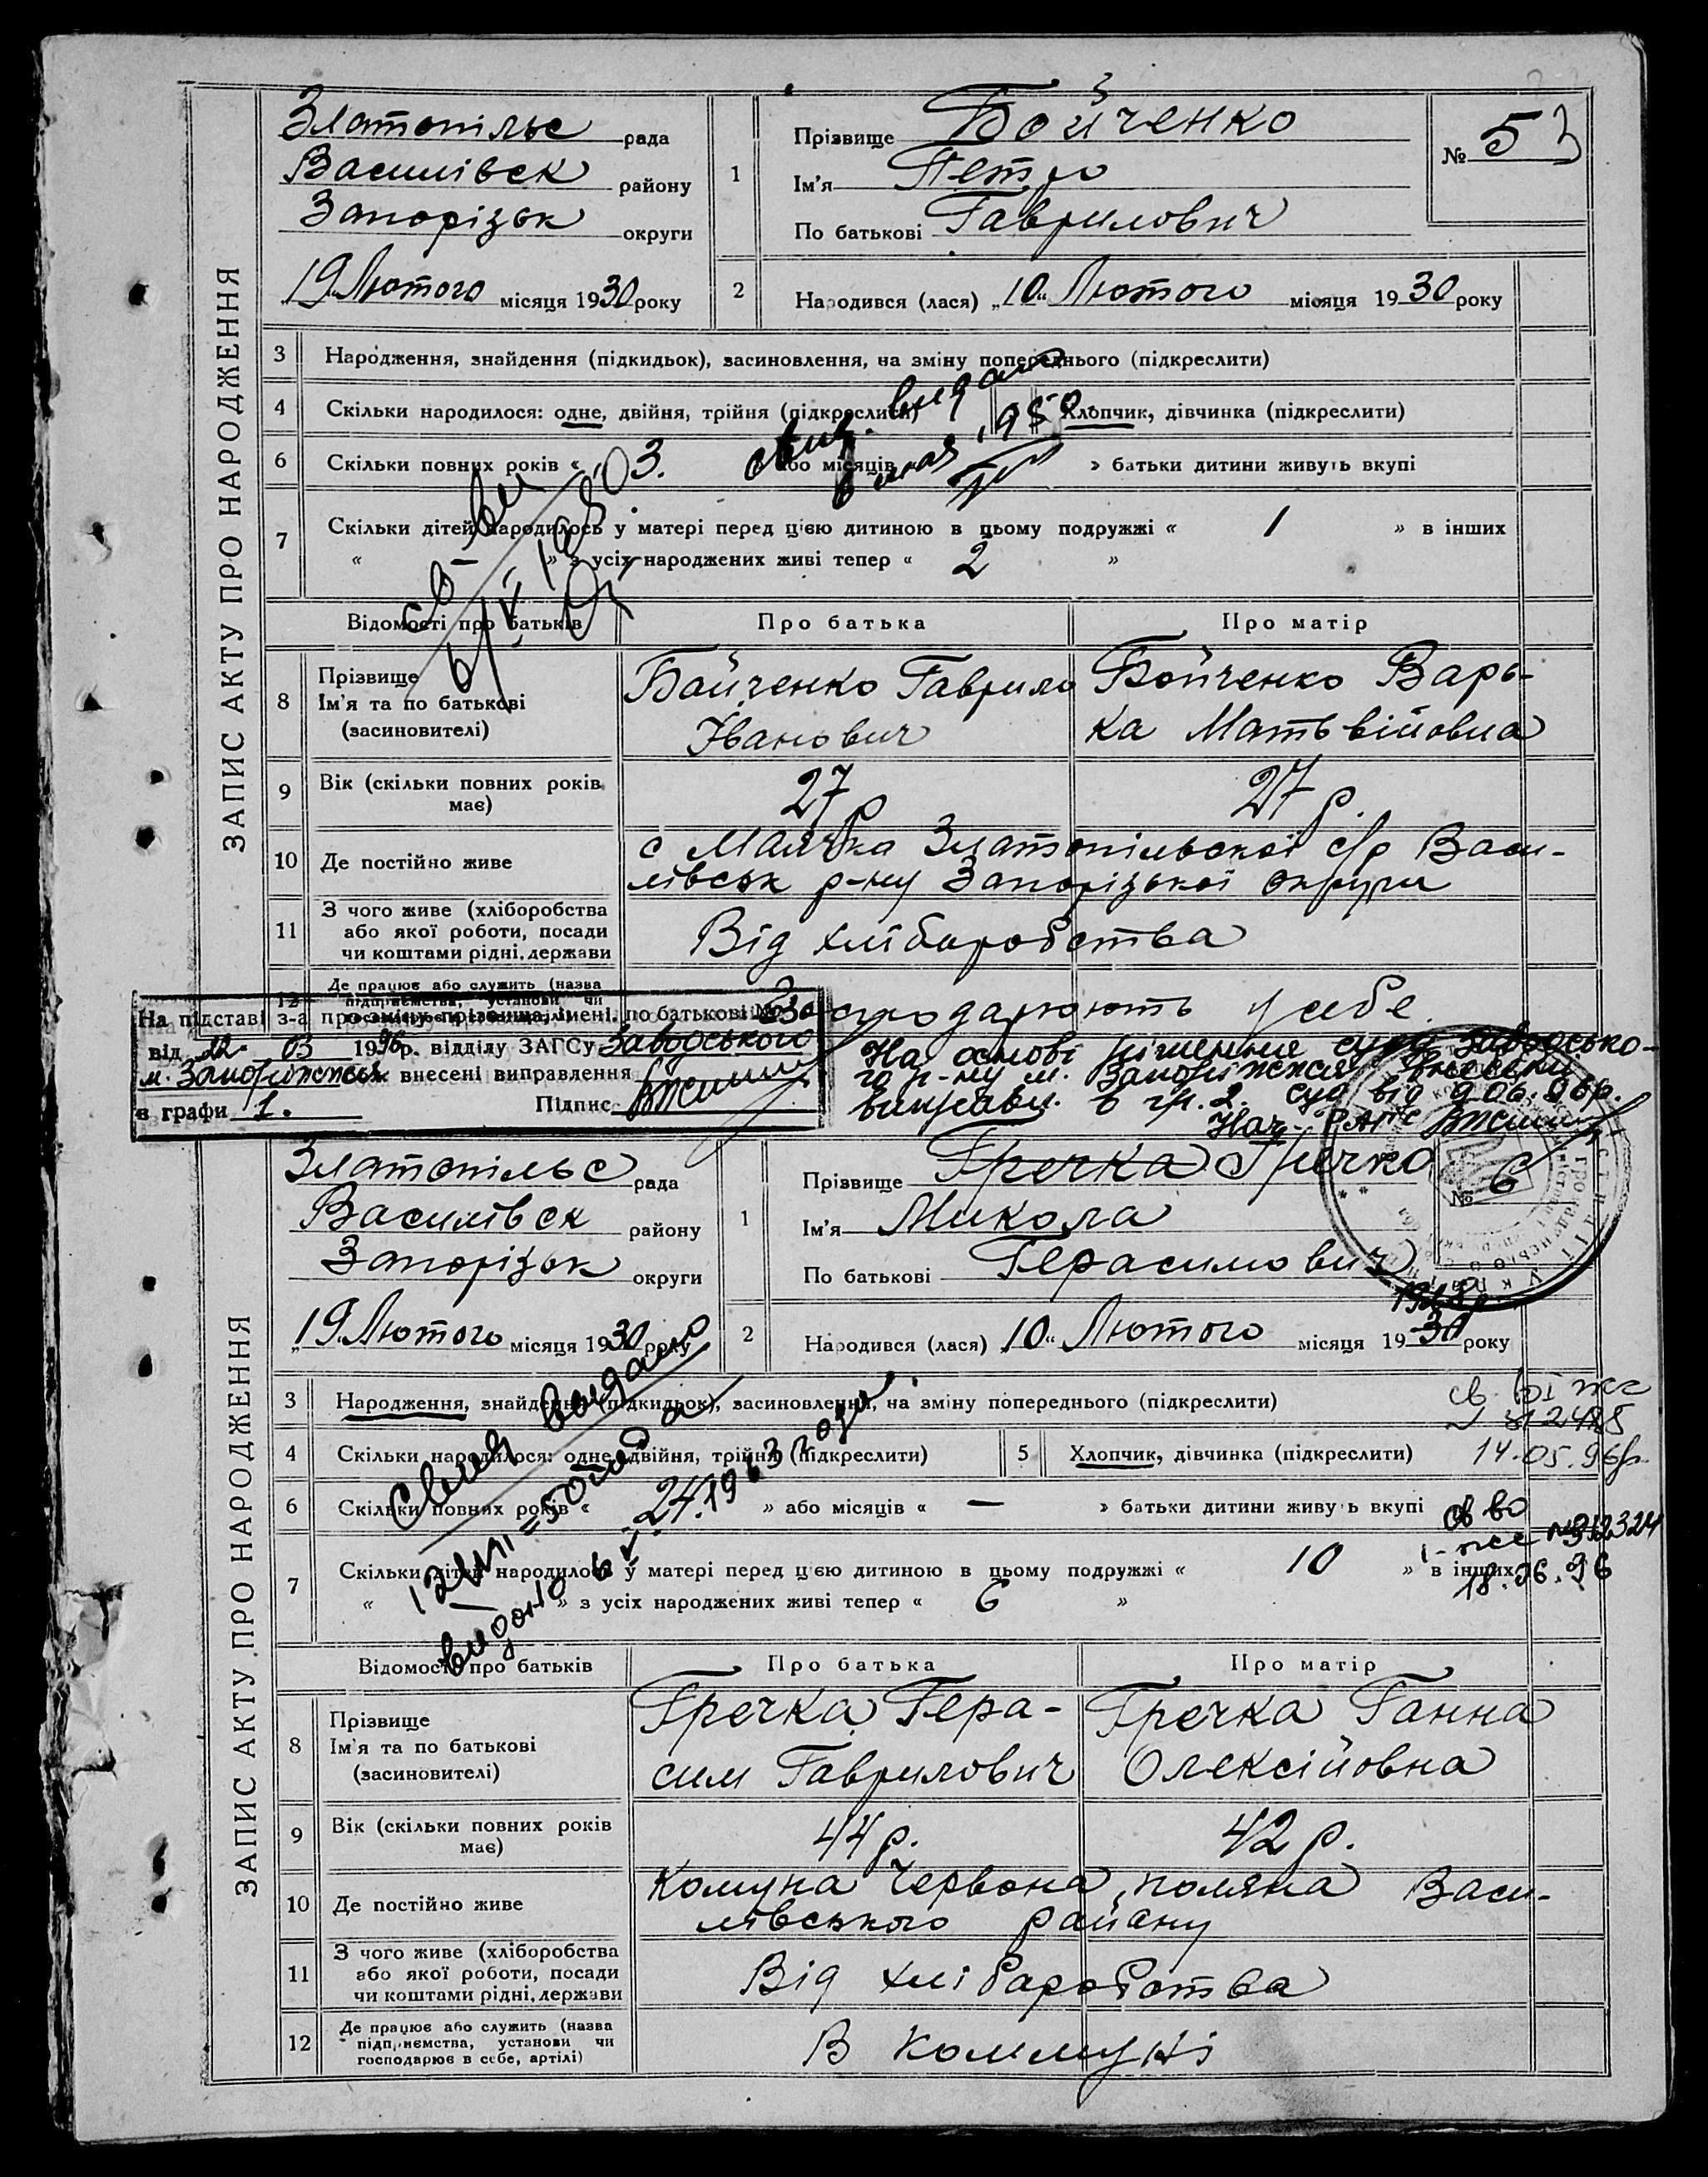 ЗАПИС АКТУ ПРО НАРОДЖЕННЯ
Златопільс рада
Василівськ району
Запорізьк округи
19 Лютого місяця 1930 року
1 Прізвище Бойченко
Ім'я Петро
По батькові Гаврилович
№ 5
2 Народився (лася) „10" Лютого місяця 1930 року
3 Народження, знайдення (підкидьок), засиновлення, на зміну попереднього (підкреслити)
4 Скільки народилося: одне, двійня, трійня (підкреслити) Хлопчик, дівчинка (підкреслити)
6 Скільки повних років « або місяців » батьки дитини живуть вкупі
7 Скільки дітей народилось у матері перед цією дитиною в цьому подружжі « 1 » в інших
« » з усіх народжених живі тепер « 2 »
Відомості про батьків Про батька Про матір
8 Прізвище Ім'я та по батькові (засиновителі)
Бойченко Гаврило Іванович
Бойченко Варька Матьвійовна
9 Вік (скільки повних років має) 27 р 27 р.
10 Де постійно живе с Маячка Златопільської с/р Васи-
лівськ р-ну Запорізької округи
11 З чого живе (хліборобства або якої роботи, посади чи коштами рідні, держави
Від хліборобства
12 Де працює або служить (назва підприємства, установи чи
Господарюють у себе.
На підставі з-а про зміну прізвища, імені, по батькові №
від 22 03 1996р. відділу ЗАГСу Заводського
м. Запоріжжя внесені виправлення
в графи 1. Підпис
На основі рішення суду Заводсько-
го р-ну м. Запоріжжя внесені
виправл. в гр. 2. суд від 9.06.96р.
Нач. РАГС
ЗАПИС АКТУ ПРО НАРОДЖЕННЯ
Златопільс рада
Василівск району
Запорізьк округи
19 Лютого місяця 1930 року
1 Прізвище Гречка Гречко
Ім'я Микола
По батькові Герасимович
№ 6
2 Народився (лася) „10" Лютого місяця 1930 року
3 Народження, знайдення (підкидьок), засиновлення, на зміну попереднього (підкреслити)
4 Скільки народилося: одне, двійня, трійня (підкреслити) 5 Хлопчик, дівчинка (підкреслити)
14.05.96р.
6 Скільки повних років « 24. » або місяців « — » батьки дитини живуть вкупі
7 Скільки дітей народилось у матері перед цією дитиною в цьому подружжі « 10 » в інших
18.06.96
« » з усіх народжених живі тепер « 6 »
Відомості про батьків Про батька Про матір
8 Прізвище Ім'я та по батькові (засиновителі)
Гречка Герасим Гаврилович
Гречка Ганна Олексійовна
9 Вік (скільки повних років має) 44 р. 42 р.
10 Де постійно живе Комуна Червона поляна Васи-
лівського району
11 З чого живе (хліборобства або якої роботи, посади чи коштами рідні, держави
Від хліборобства
12 Де працює або служить (назва підприємства, установи чи господарює в себе, артілі)
В коммуні